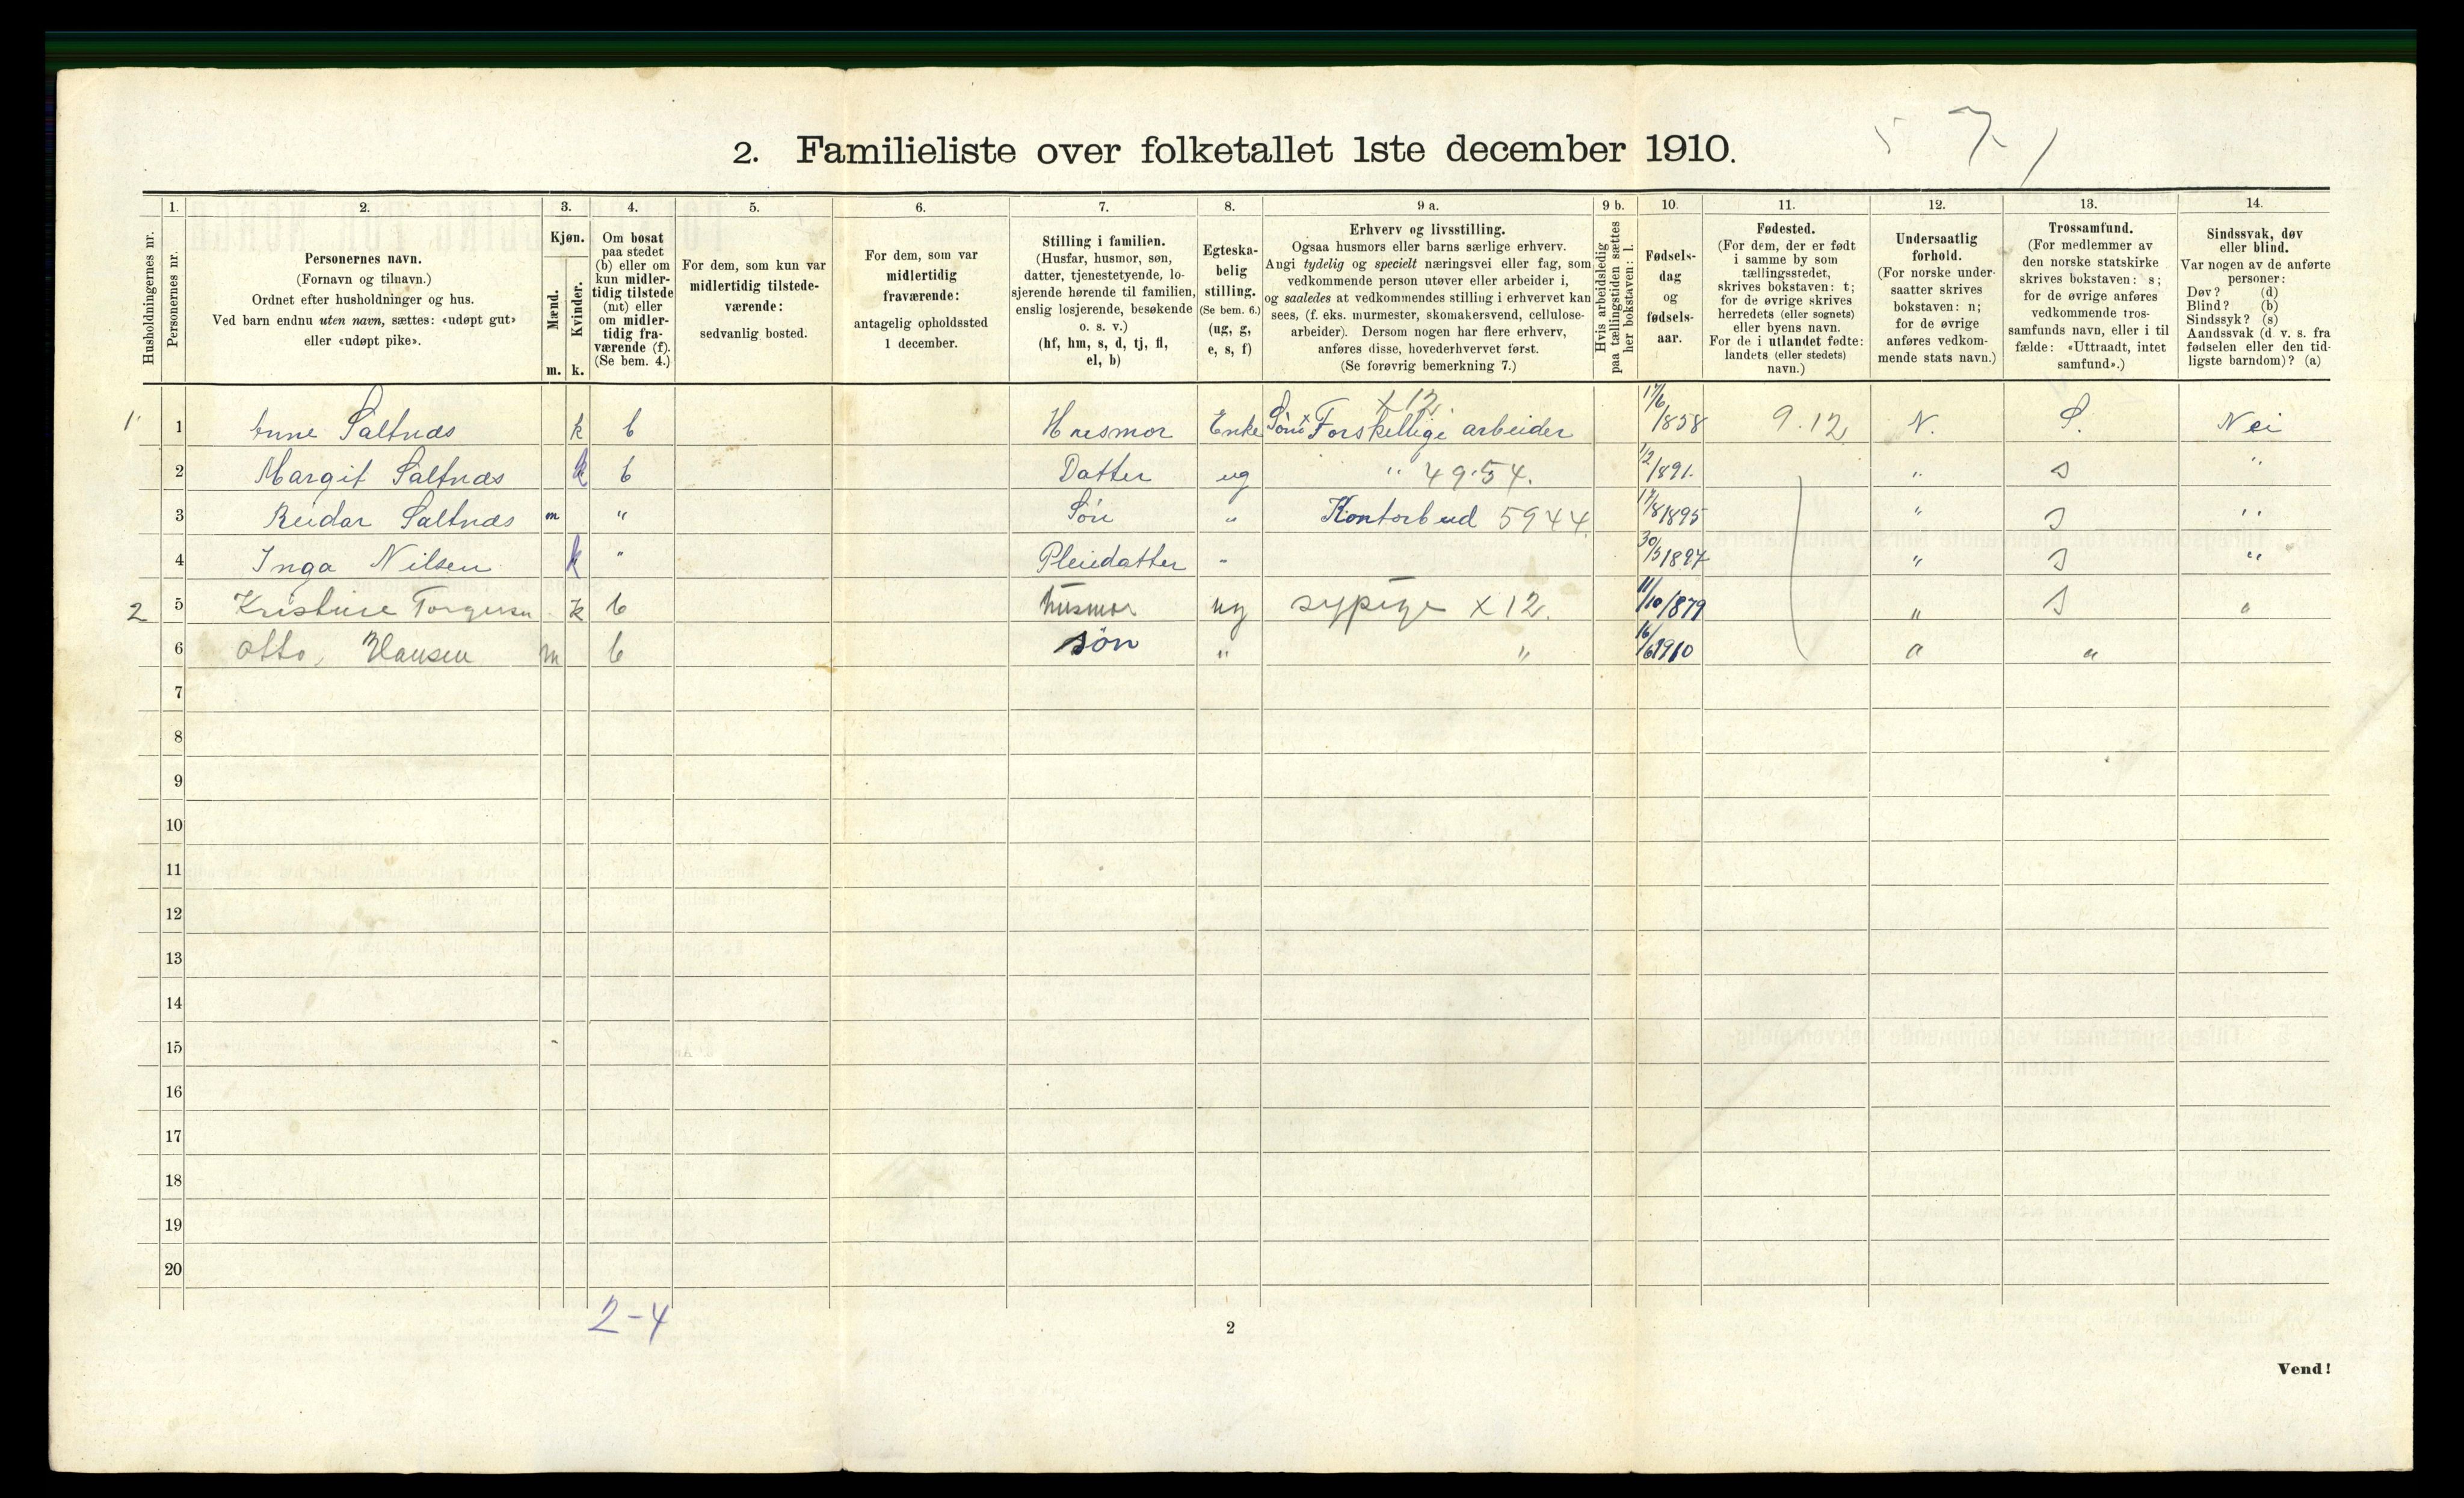 2. Familieliste over folketallet 1ste december 1910.
1. 2. 3. 4. 5. 6. 7. 8. 9 a. 9 b. 10. 11. 12. 13. 14.
Husholdningernes nr.
Personernes nr.
Personernes navn.
(Fornavn og tilnavn.)
Ordnet efter husholdninger og hus.
Ved barn endnu uten navn, sættes: «udøpt gut»
eller «udøpt pike».
Kjøn.
Mænd.
Kvinder.
m. k.
Om bosat
paa stedet
(b) eller om
kun midler-
tidig tilstede
(mt) eller
om midler-
tidig fra-
værende (f).
(Se bem. 4.)
For dem, som kun var
midlertidig tilstede-
værende:
sedvanlig bosted.
For dem, som var
midlertidig
fraværende:
antagelig opholdssted
1 december.
Stilling i familien.
(Husfar, husmor, søn,
datter, tjenestetyende, lo-
sjerende hørende til familien,
enslig losjerende, besøkende
o. s. v.)
(hf, hm, s, d, tj, fl,
el, b)
Egteska-
belig
stilling.
(Se bem. 6.)
(ug, g,
e, s, f)
Erhverv og livsstilling.
Ogsaa husmors eller barns særlige erhverv.
Angi tydelig og specielt næringsvei eller fag, som
vedkommende person utøver eller arbeider i,
og saaledes at vedkommendes stilling i erhvervet kan
sees, (f. eks. murmester, skomakersvend, cellulose-
arbeider). Dersom nogen har flere erhverv,
anføres disse, hovederhvervet først.
(Se forøvrig bemerkning 7.)
Hvis arbeidsledig
paa tællingstiden sættes
her bokstaven: l.
Fødsels-
dag
og
fødsels-
aar.
Fødested.
(For dem, der er født
i samme by som
tællingsstedet,
skrives bokstaven: t;
for de øvrige skrives
herredets (eller sognets)
eller byens navn.
For de i utlandet fødte:
landets (eller stedets)
navn.)
Undersaatlig
forhold.
(For norske under-
saatter skrives
bokstaven: n;
for de øvrige
anføres vedkom-
mende stats navn.)
Trossamfund.
(For medlemmer av
den norske statskirke
skrives bokstaven: s;
for de øvrige anføres
vedkommende tros-
samfunds navn, eller i til
fælde: «Uttraadt, intet
samfund».)
Sindssvak, døv
eller blind.
Var nogen av de anførte
personer:
Døv? (d)
Blind? (b)
Sindssyk? (s)
Aandssvak (d. v. s. fra
fødselen eller den tid-
ligste barndom)? (a)
x 12
1 1 Anne Saltnæs k b Husmor Enke Forskellige arbeider 17/6 1858 9.12 N. S. Nei
2 Margit Saltnæs k b Datter ug " 49.54. 1/2 1891. " s "
3 Reidar Saltnæs m " Søn " Kontorbud 5944. 17/8 1895 " s "
4 Inga Nilsen k " Pleiedatter " 30/3 1897 " s "
2 5 Kristine Torgersen k b husmor ug sypige x 12. 11/10 1879 " s "
6 Otto, Hansen m b søn " " 16/6 1910 " "
7
8
9
10
11
12
13
14
15
16
17
18
19
20
2-4
2
Vend!